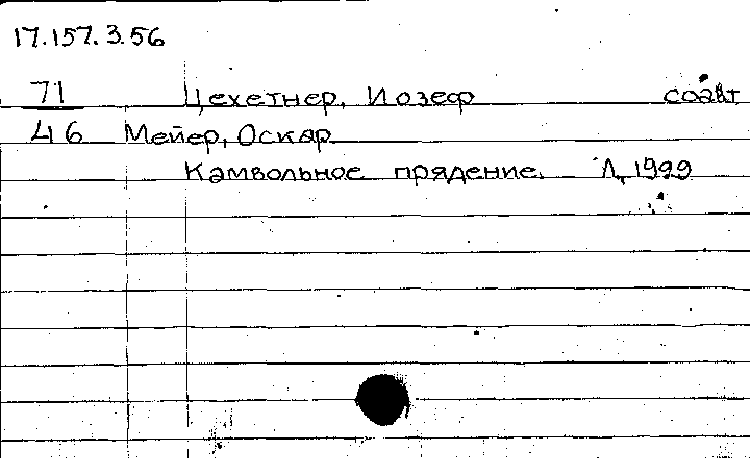 17.157.3.56
71 Цехетнер, Иозеф соавт
46 Мейер, Оскар
Камвольное прядение. Л, 1999